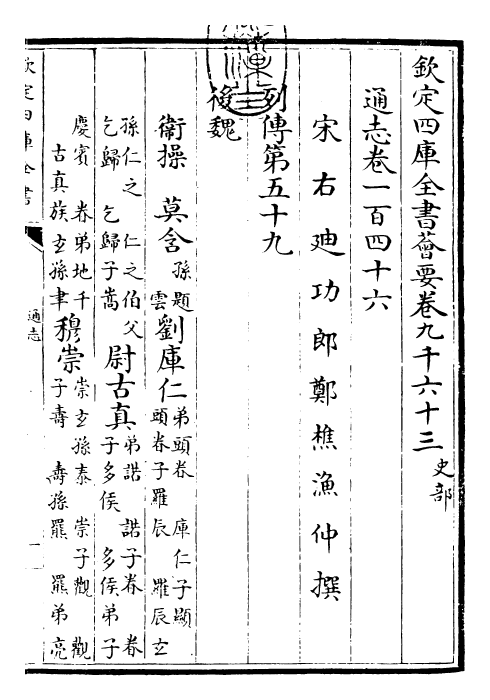 欽定四庫全書薈要卷九千六十三 史部
通志卷一百四十六
宋右迪功郎鄭樵漁仲撰
列傳第五十九
後魏
衛操 莫含 孫題 雲 劉庫仁 弟頭眷 庫仁子顯 頭眷子羅辰 羅辰玄
孫仁之 仁之伯父 乞歸 乞歸子嵩 尉古真 弟諾 諾子眷 眷 子多侯 多侯弟子
慶賓 眷弟地千 古真族玄孫聿 穆崇 崇玄孫泰 崇子觀 觀 子壽 壽孫羆 羆弟亮
欽定四庫全書
通志
一